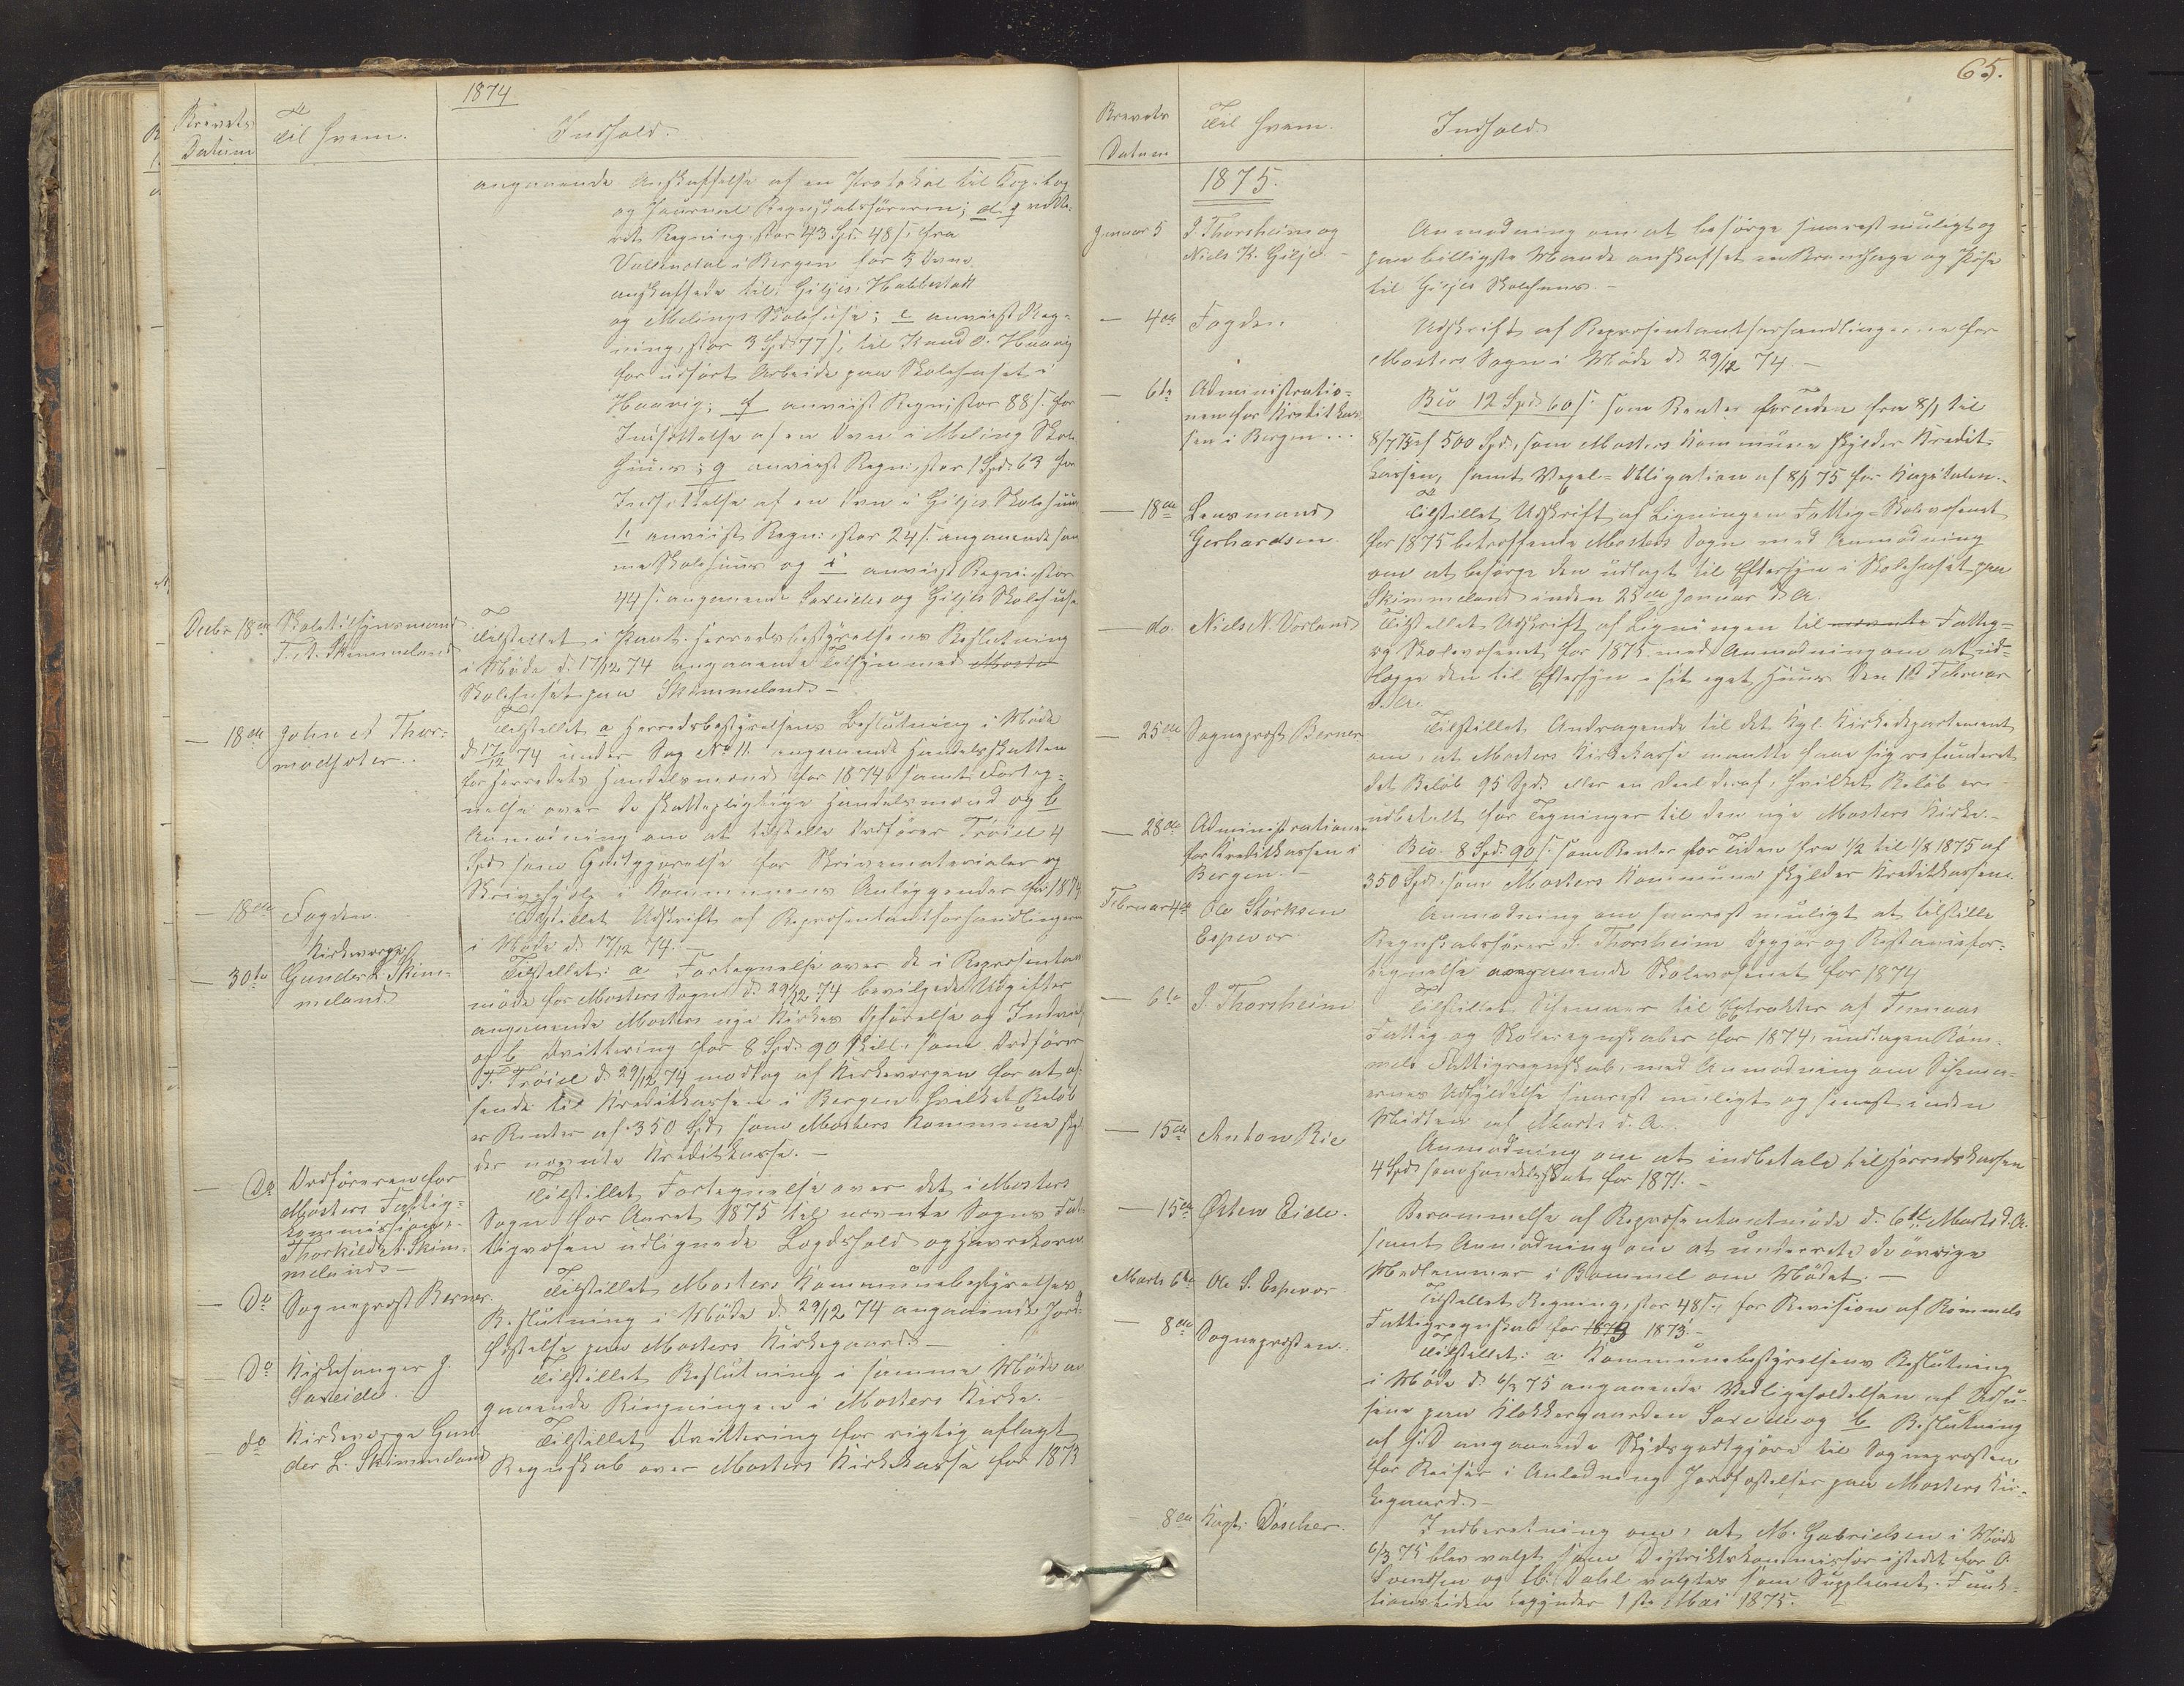 1874
Brevets
Datum
Til hvem.
Indhold.
angaaende Anskaffelse af en Protokol til Kopibog
og Journal Regnskabsføreren; d
Regning, stor 43 Spd. 48 s. fra
i Bergen for 3 Ovne,
anskaffede til Giljes, Habbestad
og Melings Skolehuse; e anviist Reg-
ning, stor 3 Spd. 77 s, til Knud O. Haavig
for udført Arbeide paa Skolehuset i
Haavig; f anviist Regn:, stor 88 s. for
Indsættelse af en Ovn i Meling Skole
huus; g anviist Regn:, stor 1 Spd. 63 for
Indsættelse af en Ovn i Giljes Skolehuus
h anviist Regn: stor 24 s. angaaende sam
me Skolehuus og i anviist Regn: stor
44 s. angaaende Sareides og Giljes Skolehuse
Decbr 18de Skoletilsynsmand
T. A. Skimmeland
Tilstillet Herredsbestyrelsens Beslutning
i Møde d. 17/12 74 angaaende Tilsyn med Moster
Skolehuset paa Skimmeland. –
– 18de John A Thor-
modsæter.
Tilstillet a Herredsbestyrelsens Beslutning i Møde
d 17/12 74 under Sag No 11 angaaende Handelsskatten
for Herredets Handelsmænd for 1874 samt Forteg-
nelse over de skattepligtige Handelsmænd og b
Anmodning om at tilstille Ordfører Trøiel 4
Spd som Godtgjørelse for Skrivematerialer og
Skrivehjælp i Kommunens Anliggender for 1874
– 18de Fogden.
Tilstillet Udskrift af Repræsentantforhandlingerne
i Møde d. 17/12 74. –
– 30te Kirkeværge
Gunder L. Skim-
meland
Tilstillet: a Fortegnelse over de i Repræsentant
møde for Mosters Sogn d. 29/12 74 bevilgede Udgifter
angaaende Mosters nye Kirkes Opførelse og
og b Qvittering for 8 Spd. 90 skill., som Ordfører
T. Trøiel d. 29/12 74 modtog af Kirkeværgen for at af-
sende til Kreditkassen i Bergen, hvilket Beløb
er Renter af 350 Spd. som Mosters Kommune skyl-
der nævnte Kreditkasse. –
– Do Ordføreren for
Mosters Fattig-
kommission,
Thorkild A. Skim-
meland –
Tilstillet Fortegnelse over det i Mosters
Sogn for Aaret 1875 til nævnte Sogns Fat
tigvæsen udlignede Lægdshold og Havrekorn
– Do Sogneprest Berner.
Tilstillet Mosters Kommunebestyrelses
Beslutning i Møde d. 29/12 74 angaaende Jord-
fæstelse paa Mosters Kirkegaard. –
– Do Kirkesanger J.
Sareide.
Tilstillet Beslutning i samme Møde an
gaaende Ringningen i Mosters Kirke.
– do Kirkeværge Gun
der L. Skimmeland
Tilstillet Qvittering for rigtig aflagt
Regnskab over Mosters Kirkekasse for 1873
65.
Brevets
Datum
Til hvem.
Indhold
1875.
Januar 5 J Thorsheim og
Niels K. Gilje. –
Anmodning om at besørge snarest muligt og
paa billigste Maade anskaffet en Brandhage og
til Giljes Skolehuus. –
– 4de Fogden
Udskrift af Repræsentantforhandlingerne for
Mosters Sogn i Møde d. 29/12 74. –
– 6te Administratio-
nen for Kreditkas
sen i Bergen. ..
Bio 12 Spd. 60 s. som Renter for Tiden fra 8/1 til
8/7 75 af 500 Spd., som Mosters Kommune skylder Kredit-
kassen, samt Vexel-Obligation af 8/1 75 for Kapitalen.
– 18de Lensmand
Gerhardsen.
Tilstillet Udskrift af Ligningen Fattig- Skolevæsenet
for 1875 betræffende Mosters Sogn med Anmodning
om at besørge den udlagt til Eftersyn i Skolehuset paa
Skimmeland inden 25de Januar d. A.
– do. Niels N. Vorland
Tilstillet Udskrift af Ligningen til nævnte Fattig-
og Skolevæsenet for 1875 med Anmodning om at ud-
lægge den til Eftersyn i sit eget Huus den 1ste Februar
d. A.
– 25de Sogneprest Berner
Tilstillet Andragende til det Kgl. Kirkedepartement
om, at Mosters Kirkekasse maatte faae sig refunderet
det Beløb 95 Spd. eller en Deel deraf, hvilket Beløb er
udbetalt for Tegninger til den nye Mosters Kirke. –
– 28de Administrationen
for Kreditkassen i
Bergen. –
Bio 8 Spd. 90 s. som Renter for Tiden fra 1/2 til 1/8 1875 af
350 Spd. som Mosters Kommune skylder Kreditkassen.
Februar 4de Ole Størksen
Espevær.
Anmodning om snarest muligt at tilstille
Regnskabsfører J. Thorsheim Opgjør og Restancefor-
tegnelse angaaende Skolevæsenet for 1874
– 6te J. Thorsheim
Tilstillet Schemaer til Extrakter af Finnaas
Fattig og Skoleregnskaber for 1874, undtagen Bøm-
mels Fattigregnskab, med Anmodning om Schema-
ernes Udfyldelse snarest muligt og senest inden
Midten af Marts d. A.
– 15de Anton Rie
Anmodning om at indbetale til Herredskassen
4 Spd. som Handelsskat for 1871. –
– 15de Østen Eide.
Berammelse af Repræsentantmøde d. 6te Marts d. A.
samt Anmodning om at underrette de øvrige
Medlemmer i Bømmel om Mødet. –
Marts 6te Ole S. Espevær.
Tilstillet Regning, stor 48 s., for Revision af Bømmels
Fattigregnskab for 1873 1873. –
– 8de Sognepresten.
Tilstillet: a. Kommunebestyrelsens Beslutning
i Møde d. 6/3 75 angaaende Vedligeholdelsen af
husene paa Klokkergaarden Sareide og b Beslutning
af s. D angaaende Skydsgodtgjørelse til Sognepresten
for Reiser i Anledning Jordfæstelser paa Mosters Kir-
kegaard. –
– 8de Kapt. Døscher.
Indberetning om, at M. Gabrielsen i Møde
6/3 75 blev valgt som Distriktskommissær istedet for O.
Svendsen og M. Dahl valgtes som Suppleant. Funk-
tionstiden begynder 1ste Mai 1875. –